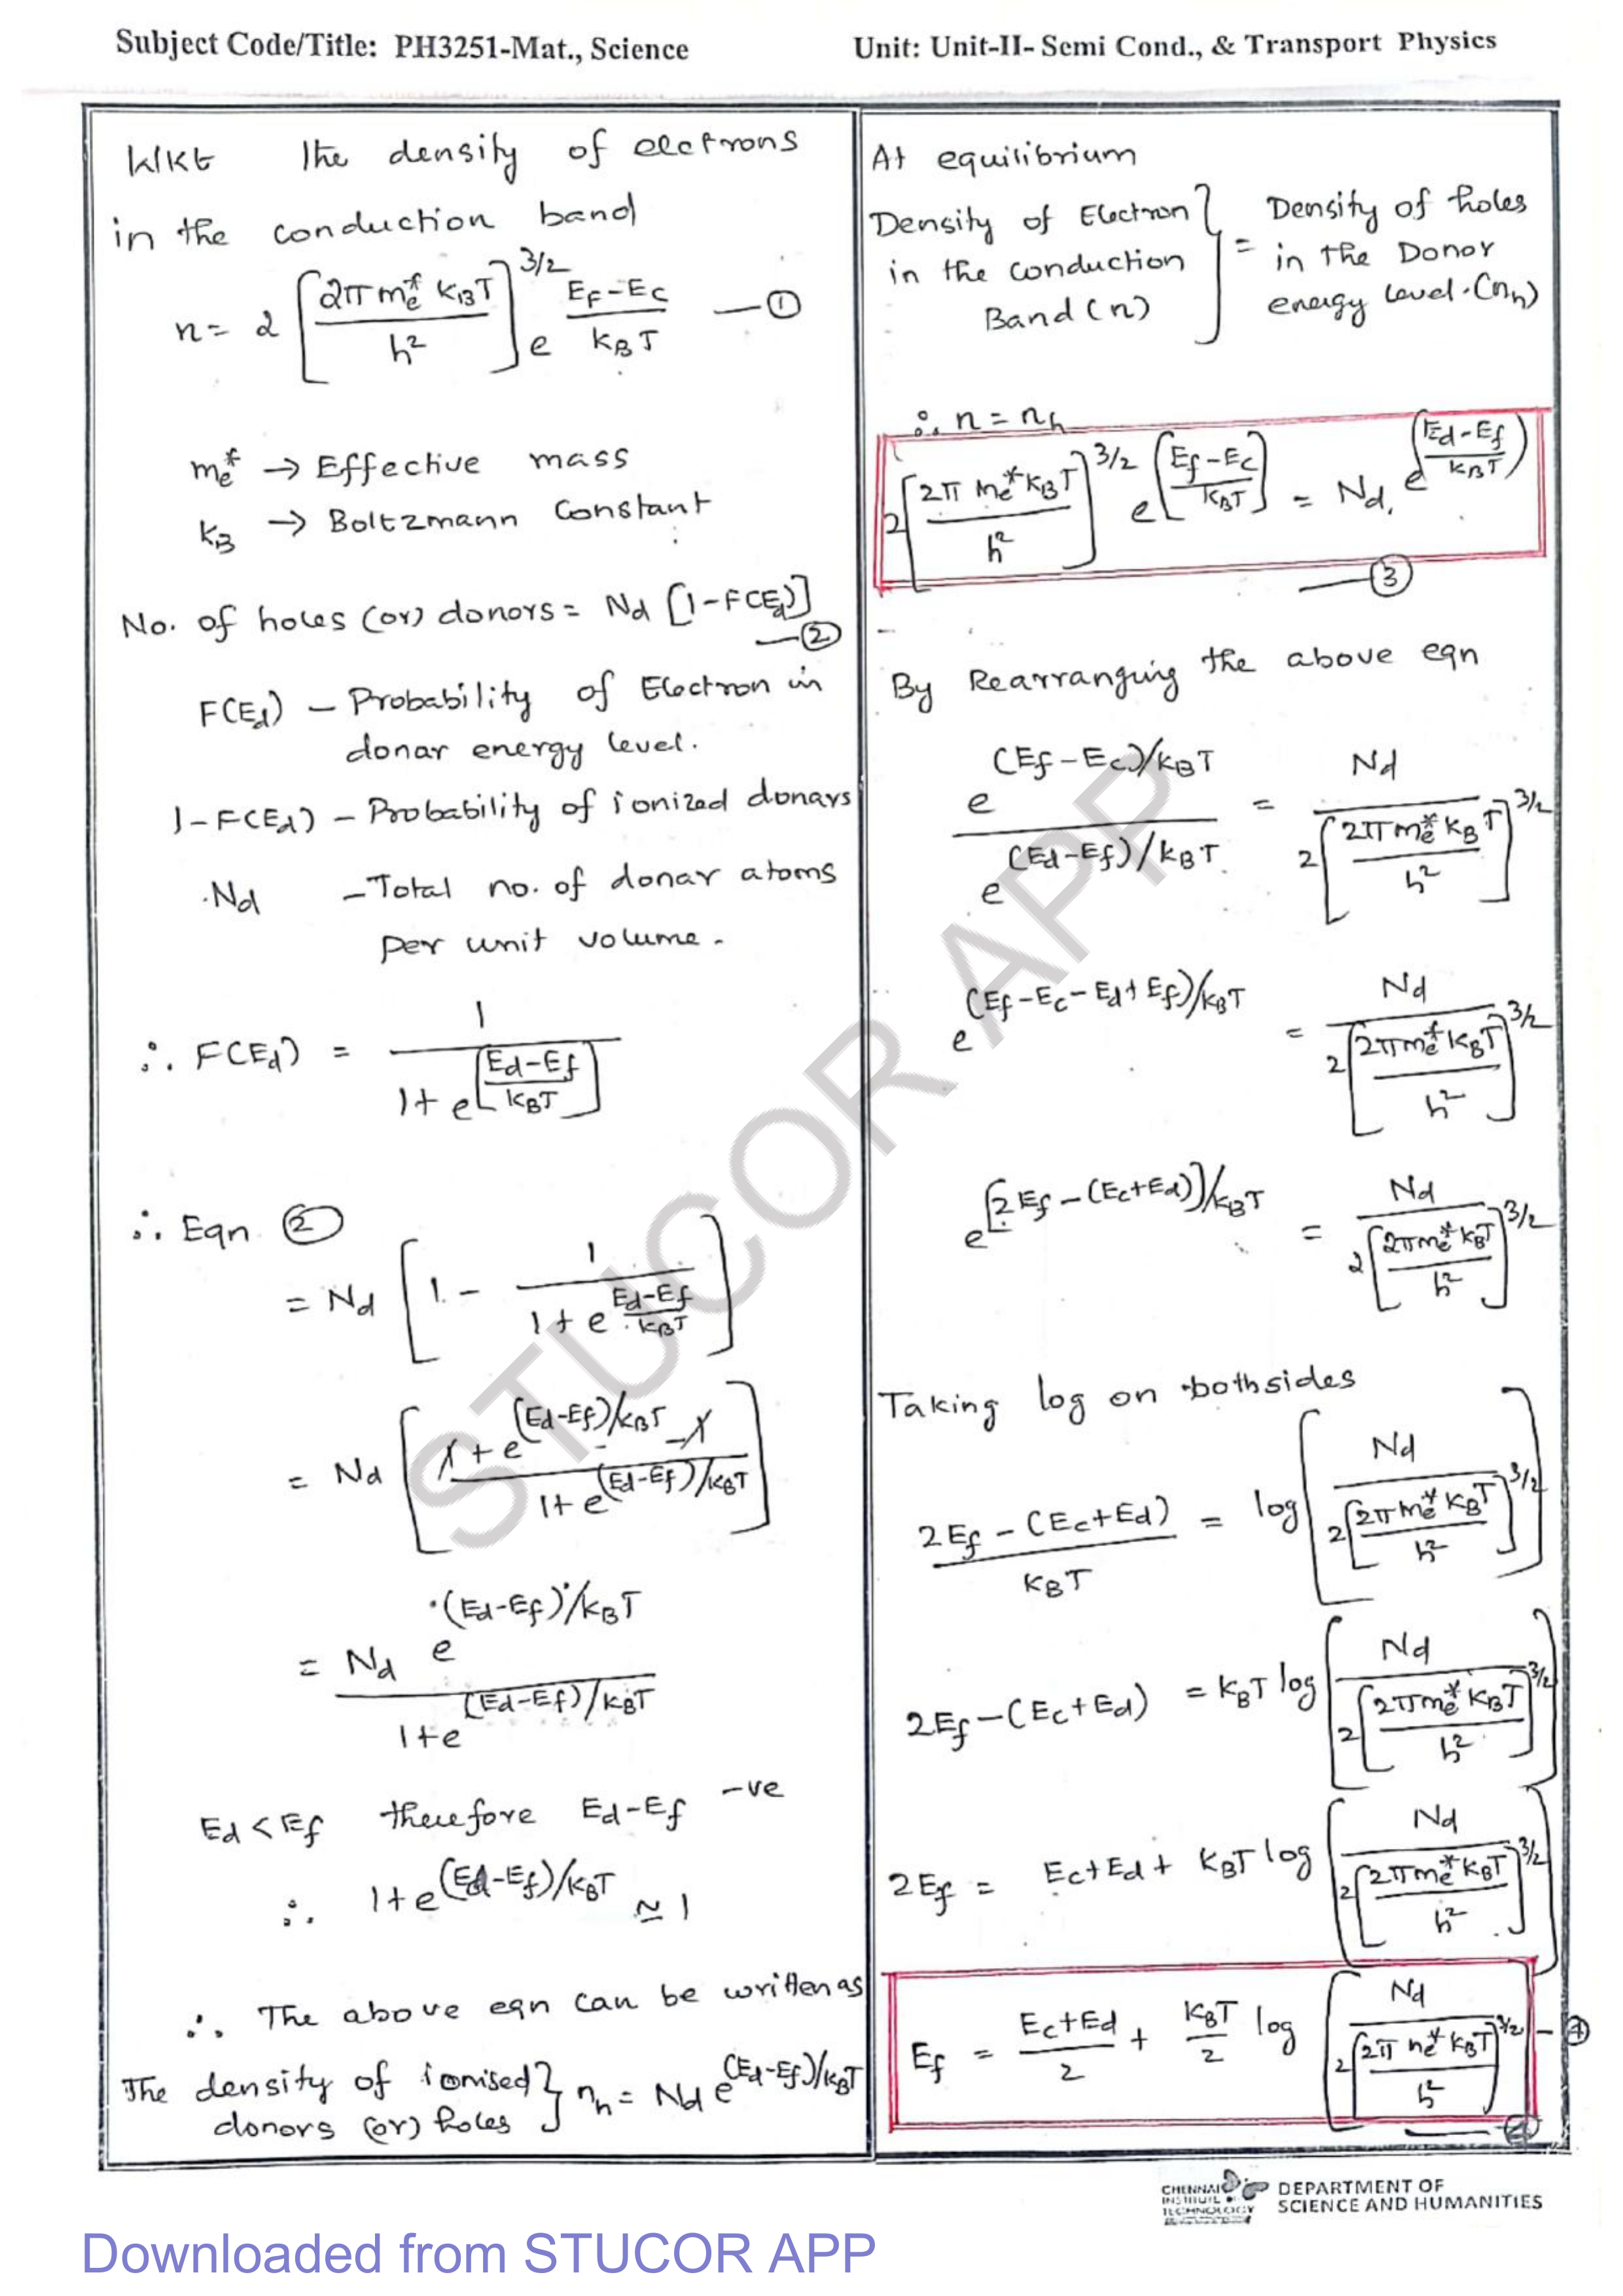 Subject Code/Title: PH3251-Mat., Science
Unit: Unit-II- Semi Cond., & Transport Physics
WKt the density of electrons
in the conduction band
n = 2 [2π me* KBT / h²]^3/2 e^(EF-EC / KBT) —①
me* → Effective mass
KB → Boltzmann Constant
No. of holes (or) donors = Nd [1-F(Ed)]
—②
F(Ed) – Probability of Electron in
donar energy level.
1-F(Ed) – Probability of ionized donars
Nd – Total no. of donar atoms
per unit volume.
∴ F(Ed) = 1 / 1+e^[Ed-Ef / KBT]
∴ Eqn ②
= Nd [1 - 1 / 1+e^(Ed-Ef / KBT)]
= Nd [1+e^(Ed-Ef)/KBT - 1 / 1+e^(Ed-Ef)/KBT]
= Nd e^(Ed-Ef)/KBT / 1+e^(Ed-Ef)/KBT
Ed < Ef therefore Ed-Ef -ve
∴ 1+e^(Ed-Ef)/KBT ≃ 1
∴ The above eqn can be written as
The density of ionised donors (or) holes } nh = Nd e^(Ed-Ef)/KBT
At equilibrium
Density of Electron in the conduction Band (n) } = Density of holes in the Donor energy level. (nh)
∴ n = nh
2[2π me* KBT / h²]^3/2 e^[Ef-Ec / KBT] = Nd. e^(Ed-Ef / KBT)
—③
By Rearranging the above eqn
e^(Ef-Ec)/KBT / e^(Ed-Ef)/KBT = Nd / 2[2π me* KBT / h²]^3/2
e^(Ef-Ec-Ed+Ef)/KBT = Nd / 2[2π me* KBT / h²]^3/2
e^[2Ef-(Ec+Ed)]/KBT = Nd / 2[2π me* KBT / h²]^3/2
Taking log on bothsides
2Ef-(Ec+Ed) / KBT = log [Nd / 2[2π me* KBT / h²]^3/2]
2Ef-(Ec+Ed) = KBT log [Nd / 2[2π me* KBT / h²]^3/2]
2Ef = Ec+Ed + KBT log [Nd / 2[2π me* KBT / h²]^3/2]
Ef = Ec+Ed / 2 + KBT / 2 log [Nd / 2[2π me* KBT / h²]^3/2] —④
—④
STUCOR APP
CHENNAI
INSTITUTE OF
TECHNOLOGY
DEPARTMENT OF
SCIENCE AND HUMANITIES
Downloaded from STUCOR APP